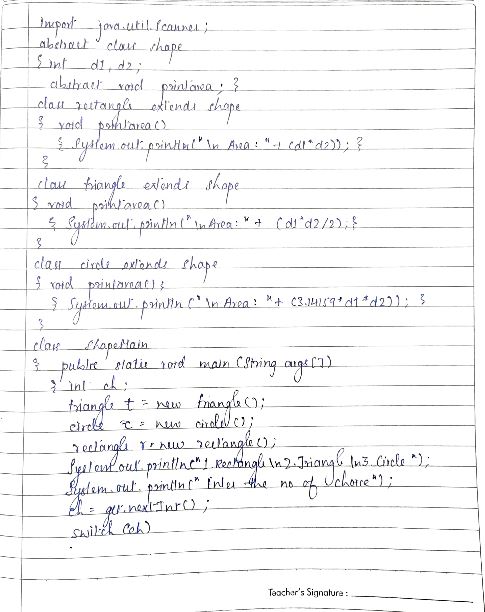 import java.util.Scanner;
abstract class shape
{ int d1, d2;
abstract void printarea; }
class rectangle extends shape
{ void printarea()
{ System.out.println("\n Area: " + (d1*d2)); }
}
class triangle extends shape
{ void printarea()
{ System.out.println("\n Area: " + (d1*d2/2); }
}
class circle extends shape
{ void printarea();
{ System.out.println("\n Area: " + (3.14159*d1*d2)); }
}
class ShapeMain
{ public static void main (String args[])
{ int ch;
triangle t = new triangle();
circle c = new circle();
rectangle r = new rectangle();
System.out.println("1.Rectangle\n2.Triangl\n3.Circle");
System.out.println("Enter the no of choice");
ch = get.nextInt();
switch (ch)
Teacher's Signature :